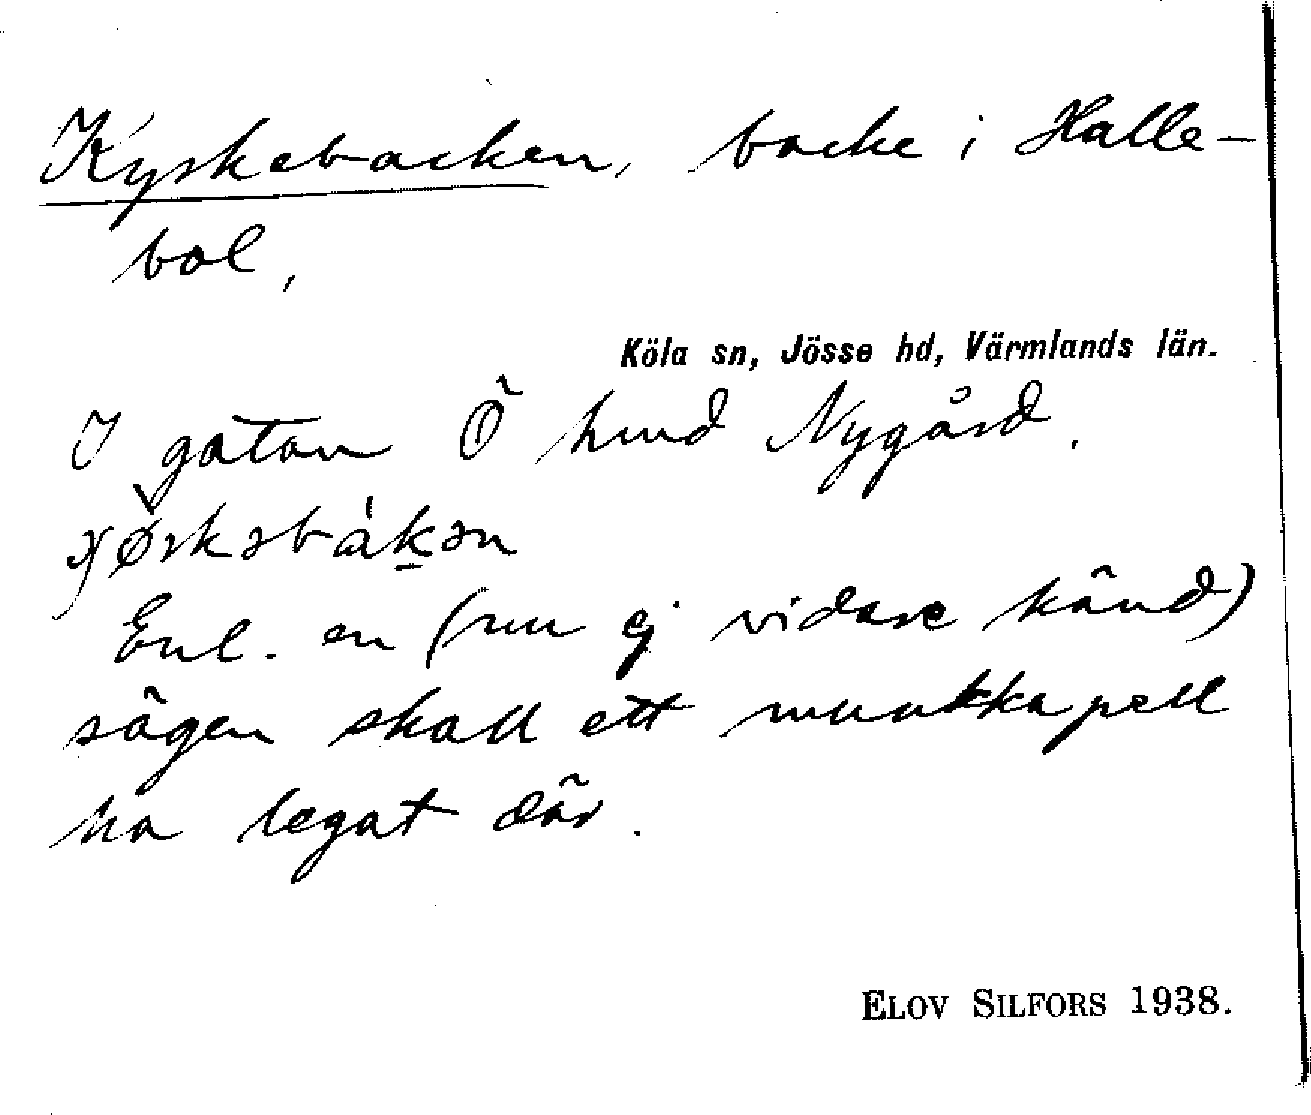 Kyskebacken, backe i Halle-
bol,
Köla sn, Jösse hd, Värmlands län.
I gatan Ö hmd Nygård.
Enl. en (nu ej vidare känd)
sägen skall ett munkkapell
ha legat där.
ELOV SILFORS 1938.